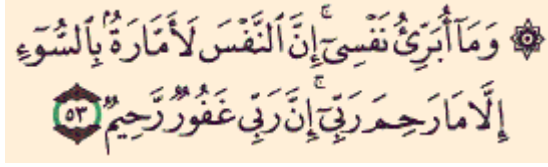 ۞ وَمَآ أُبَرِّئُ نَفْسِىٓ ۚ إِنَّ ٱلنَّفْسَ لَأَمَّارَةٌۢ بِٱلسُّوٓءِ
إِلَّا مَا رَحِمَ رَبِّىٓ ۚ إِنَّ رَبِّى غَفُورٌۭ رَّحِيمٌۭ ٥٣